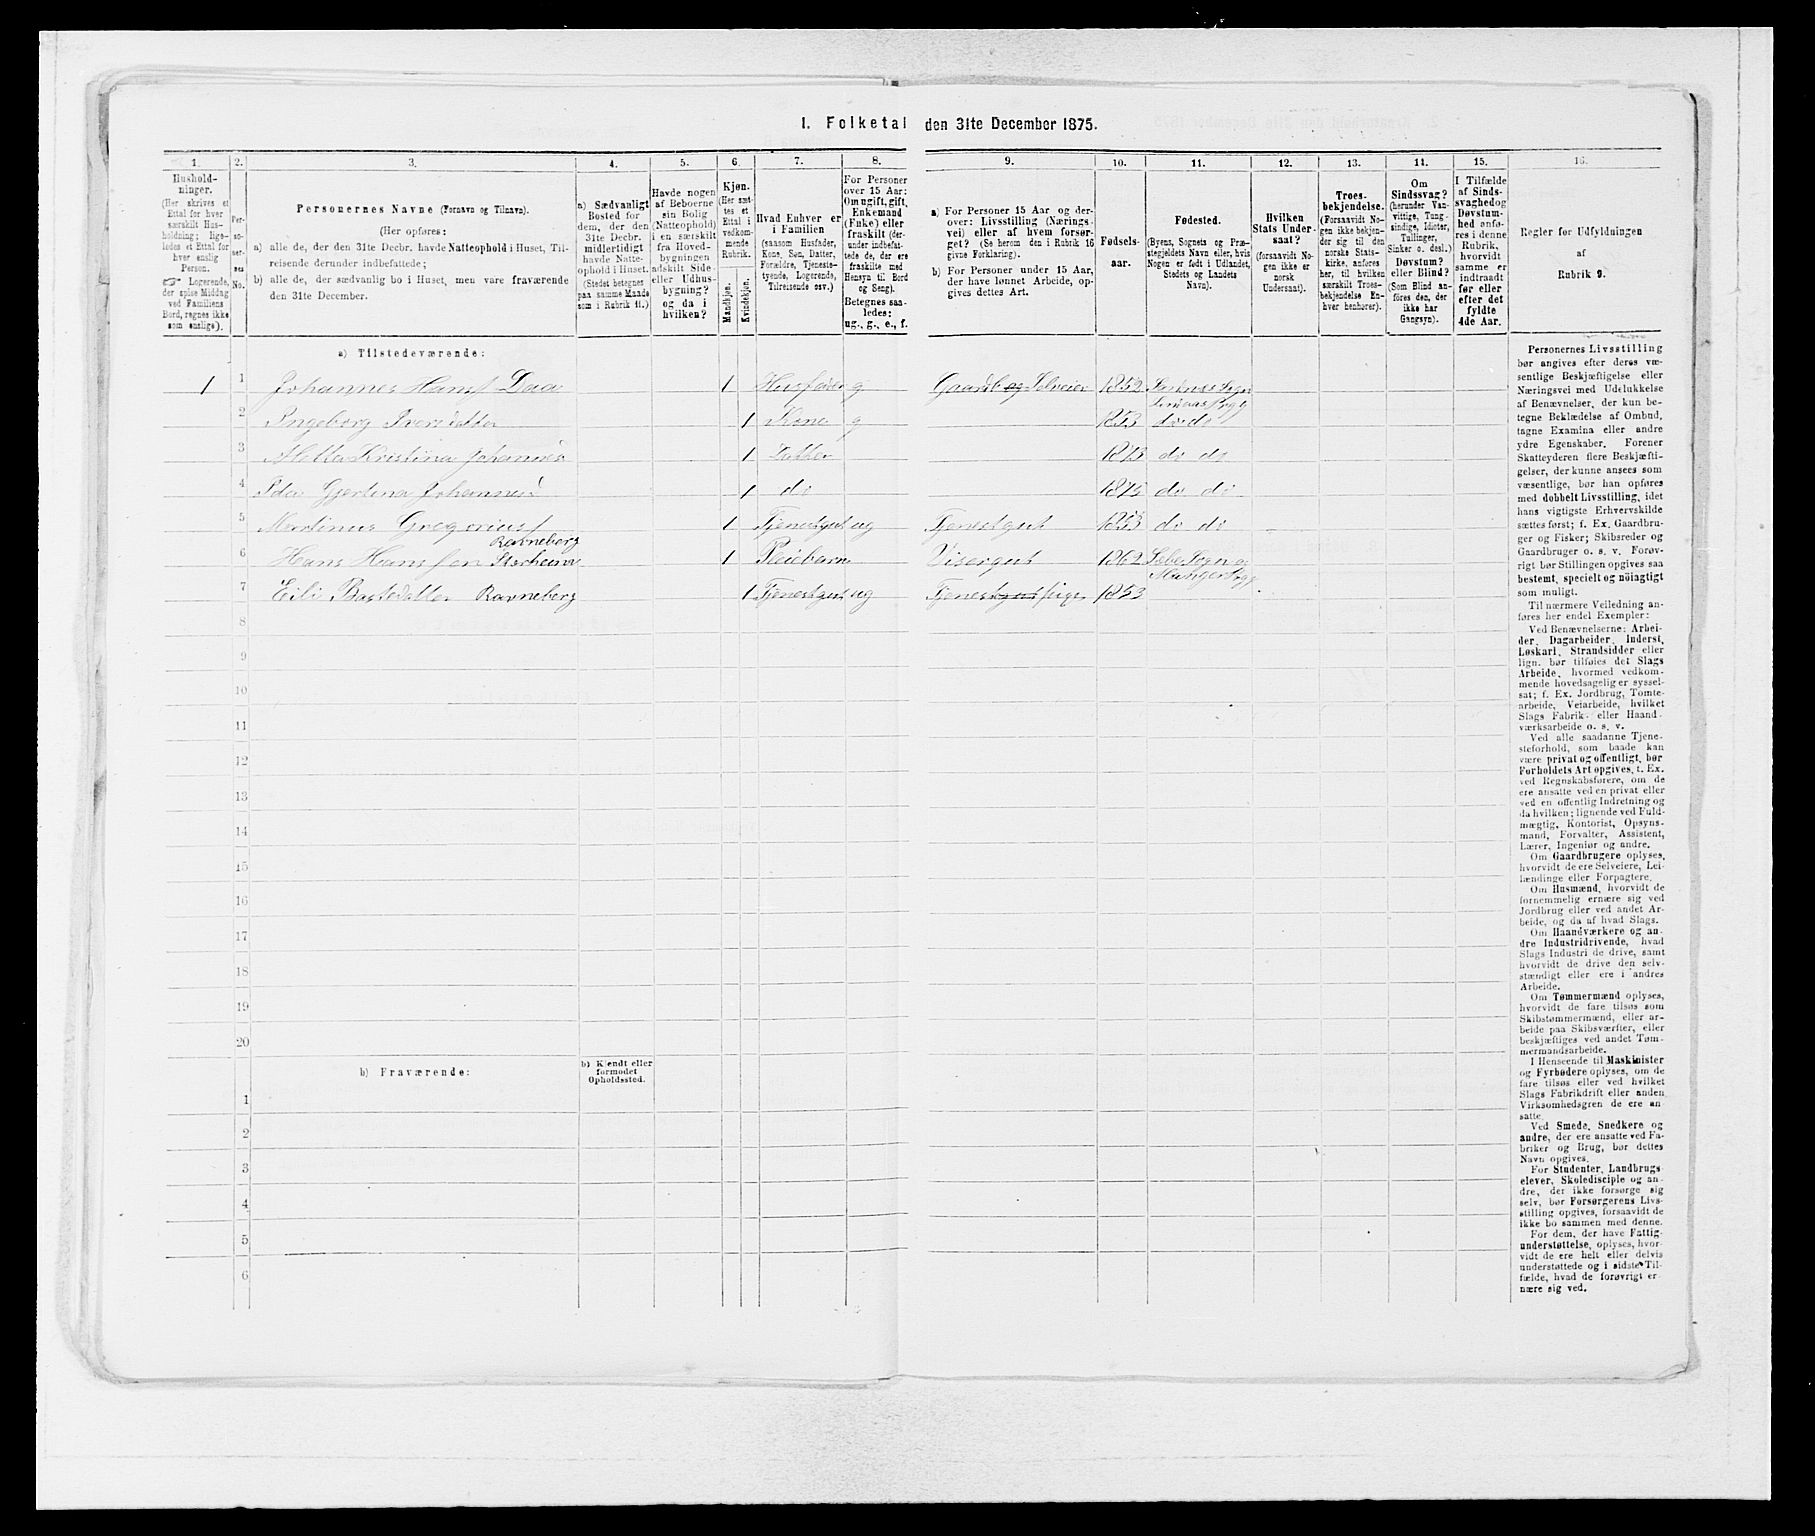 1. Folketal den 31te December 1875.
1. 2. 3. 4. 5. 6. 7. 8. 9. 10. 11. 12. 13. 14. 15. 16.
Hushold-
ninger.
(Her skrives et
Ettal for hver
særskilt Hus-
holdning; lige-
ledes et Ettal for
hver enslig
Person.
☞ Logerende,
der spise Middag
ved Familiens
Bord, regnes ikke
som enslige).
Per-
so-
ner-
nes
No.
Personernes Navne (Fornavn og Tilnavn).
(Her opføres:
a) alle de, der den 31te Decbr. havde Natteophold i Huset, Til-
reisende derunder indbefattede;
b) alle de, der sædvanlig bo i Huset, men vare fraværende
den 31te December.
a) Sædvanligt
Bosted for
dem, der den
31te Decbr.
midlertidigt
havde Natte-
ophold i Huset.
(Stedet betegnes
paa samme Maade
som i Rubrik 11.)
Havde nogen
af Beboerne
sin Bolig
(Natteophold)
i en særskilt
fra Hoved-
bygningen
adskilt Side-
eller Udhus-
bygning?
og da i
hvilken?
Kjøn.
(Her sæt-
tes et
Ettal i
vedkom-
mende
Rubrik.
Mandkjøn.
Kvindekjøn.
Hvad Enhver er
i Familien
(saasom Husfader,
Kone, Søn, Datter,
Forældre, Tjeneste-
tyende, Logerende,
Tilreisende osv.)
For Personer
over 15 Aar:
Om ugift, gift,
Enkemand
(Enke) eller
fraskilt (der-
under indbefat-
tede de, der ere
fraskilte med
Hensyn til Bord
og Seng).
Betegnes saa-
ledes:
ug., g., e., f.
a) For Personer 15 Aar og der-
over: Livsstilling (Nærings-
vei) eller af hvem forsør-
get? (Se herom den i Rubrik 16
givne Forklaring).
b) For Personer under 15 Aar,
der have lønnet Arbeide, op-
gives dettes Art.
Fødsels-
aar.
Fødested.
(Byens, Sognets og Præ-
stegjeldets Navn eller, hvis
Nogen er født i Udlandet,
Stedets og Landets
Navn).
Hvilken
Stats Under-
saat?
(forsaavidt No-
gen ikke er
norsk
Undersaat).
Troes-
bekjendelse.
(Forsaavidt No-
gen ikke bekjen-
der sig til den
norske Stats-
kirke, anføres
her, til hvilken
særskilt Troes-
bekjendelse En-
hver henhører).
Om
Sindssvag?
(herunder Van-
vittige, Tung-
sindige, Idioter,
Tullinger,
Sinker o. desl.)
Døvstum?
eller Blind?
(Som Blind an-
føres den, der
ikke har
Gangsyn).
I Tilfælde
af Sinds-
svaghed og
Døvstum-
hed anfø-
res i denne
Rubrik,
hvorvidt
samme er
indtraadt
før eller
efter det
fyldte
4de Aar.
Regler for Udfyldningen
af
Rubrik 9.
a) Tilstedeværende:
1 1 Johannes Hans f Daa 1 Husfader g Gaardb og Selveier 1852
2 Ingeborg Iversdatter 1 Kone g 1853 do do
3 Metta Kristina Johannes 1 Datter 1873 do do
4 Ida Gjertina Johannes 1 do 1875 do do
5 Martinus Gregorius f 1 Tjenestgut ug Tjenestgut 1853 do do
Ravneberg
6 Hans Hanssen 1 Pleiebarn Visergut 1862 Sæbø Sogn
Manger Prgj
7 Eili Ravneberg 1 Tjenestgut ug Tjenestgut pige 1853
8
9
10
11
12
13
14
15
16
17
18
19
20
b) Fraværende:
b) Kjendt eller
formodet
Opholdssted.
1
2
3
4
5
6
Personernes Livsstilling
bør angives efter deres væ-
sentlige Beskjæftigelse eller
Næringsvei med Udelukkelse
af Benævnelser, der kun be-
tegne Beklædelse af Ombud,
tagne Examina eller andre
ydre Egenskaber. Forener
Skatteyderen flere Beskjæfti-
gelser, der kunne ansees som
væsentlige, bør han opføres
med dobbelt Livsstilling, idet
hans vigtigste Erhvervskilde
sættes først; f. Ex. Gaardbru-
ger og Fisker; Skibsreder og
Gaardbruger o. s. v. Forøv-
rigt bør Stillingen opgives saa
bestemt, specielt og nöiagtigt
som muligt.
Til nærmere Veiledning an-
føres her endel Exempler:
Ved Benævnelserne: Arbei-
der, Dagarbeider, Inderst,
Løskarl, Strandsidder eller
lign. bør tilføies det Slags
Arbeide, hvormed vedkom-
mende hovedsagelig er syssel-
sat; f. Ex. Jordbrug, Tomte-
arbeide, Veiarbeide, hvilket
Slags Fabrik- eller Haand-
værksarbeide o. s. v.
Ved alle saadanne Tjene-
steforhold, som baade kan
være privat og offentligt, bør
Forholdets Art opgives, t. Ex.
ved Regnskabsførere, om de
ere ansatte ved en privat eller
ved en offentlig Indretning og
da hvilken; lignende ved Fuld-
mægtig, Kontorist, Opsyns-
mand, Forvalter, Assistent,
Lærer, Ingeniør og andre.
Om Gaardbrugere oplyses,
hvorvidt de ere Selveiere, Lei-
lændinge eller Forpagtere.
Om Husmænd, hvorvidt de
fornemmelig ernære sig ved
Jordbrug eller ved andet Ar-
beide, og da af hvad Slags.
Om Haandværkere og an-
dre Industridrivende, hvad
Slags Industri de drive, samt
hvorvidt de drive den selv-
stændigt eller ere i andres
Arbeide.
Om Tømmermænd oplyses,
hvorvidt de fare tilsøs som
Skibstømmermænd, eller ar-
beide paa Skibsværfter, eller
beskjæftiges ved andet Tøm-
mermandsarbeide.
I Henseende til Maskinister
og Fyrbødere oplyses, om de
fare tilsøs eller ved hvilket
Slags Fabrikdrift eller anden
Virksomhedsgren de ere an-
satte.
Ved Smede, Snedkere og
andre, der ere ansatte ved Fa-
briker og Brug, bør dettes
Navn opgives.
For Studenter, Landbrugs-
elever, Skoledisciple og an-
dre, der ikke forsørge sig
selv, bør Forsørgerens Livs-
stilling opgives, forsaavidt de
ikke bo sammen med denne.
For dem, der have Fattig-
understøttelse, oplyses, hvor-
vidt de ere helt eller delvis
understøttede og i sidste Til-
fælde, hvad de forøvrigt er-
nære sig ved.